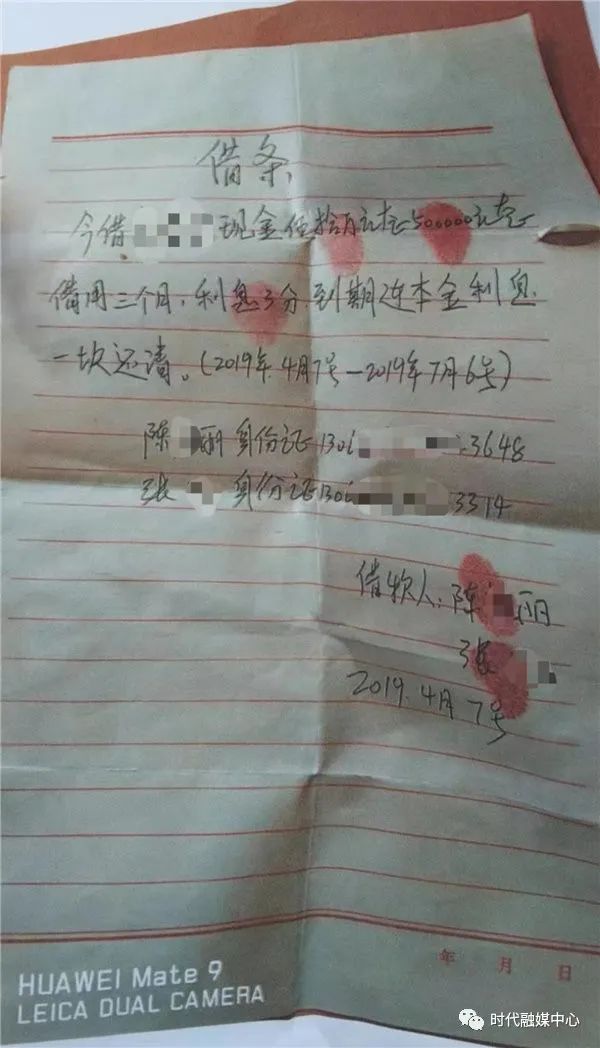 借条
今借 现金伍拾万元整500000元整
借用三个月,利息3分.到期连本金利息
一次还清。(2019年.4月7号-2019年7月6号)
陈 丽身份证130 3648
张 身份证130 3314
借款人:陈 丽
张
2019.4月7号
年 月 日
HUAWEI Mate 9
LEICA DUAL CAMERA
时代融媒中心